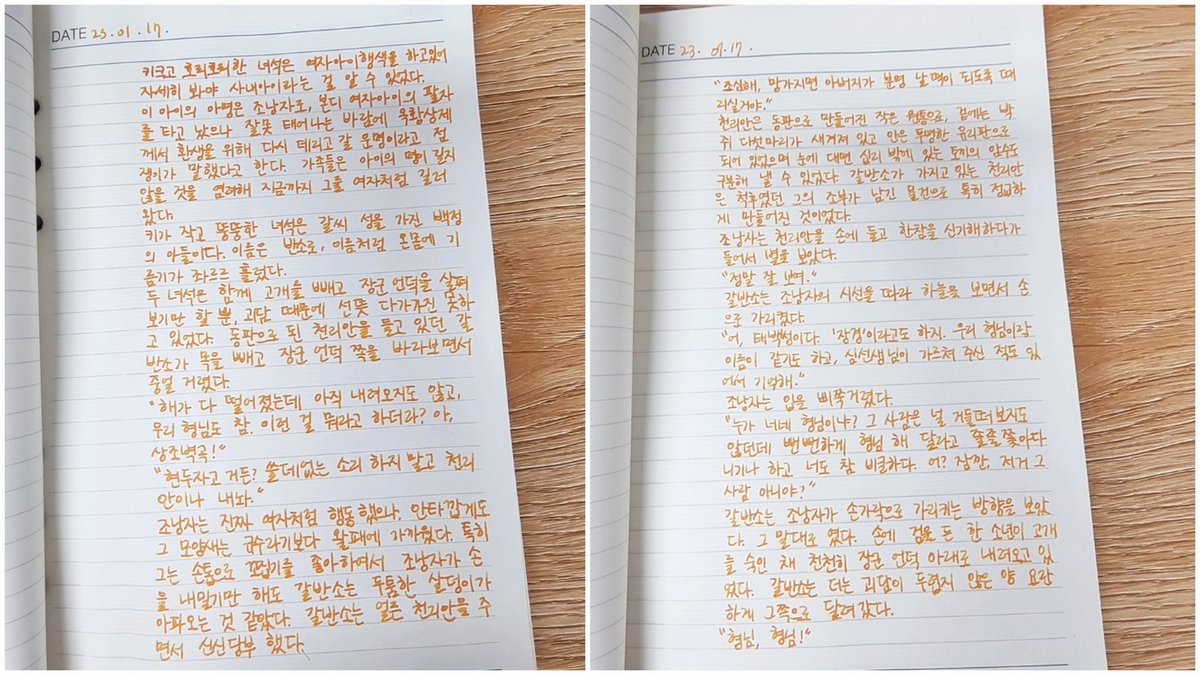 DATE 23. 01. 17.
키크고 호리호리한 녀석은 여자아이행색을 하고있어
자세히 봐야 사내아이라는 걸 알 수 있었다.
이 아이의 아명은 조낭자로, 본디 여자아이의 팔자
를 타고 났으나 잘못 태어나는 바람에 옥황상제
께서 환생을 위해 다시 데리고 갈 운명이라고 점
쟁이가 말했다고 한다. 가족들은 아이의 명이 길지
않을 것을 염려해 지금까지 그를 여자처럼 길러
왔다.
키가 작고 뚱뚱한 녀석은 갈씨 성을 가진 백정
의 아들이다. 이름은 반소로, 이름처럼 온몸에 기
름기가 좌르르 흘렀다.
두 녀석은 함께 고개를 빼고 장군 언덕을 살펴
보기만 할 뿐, 괴담 때문에 선뜻 다가가진 못하
고 있었다. 동판으로 된 천리안을 들고 있던 갈
반소가 목을 빼고 장군 언덕 쪽을 바라보면서
중얼 거렸다.
"해가 다 떨어졌는데 아직 내려오지도 않고,
우리 형님도 참. 이런 걸 뭐라고 하더라? 아,
상조벽곡!"
"현두자고 거든? 쓸데없는 소리 하지 말고 천리
안이나 내놔."
조낭자는 진짜 여자처럼 행동했으나, 안타깝게도
그 모양새는 규수라기보다 왈패에 가까웠다. 특히
그는 손톱으로 꼬집기를 좋아하여서 조낭자가 손
을 내밀기만 해도 갈반소는 두툼한 살덩이가
아파오는 것 같았다. 갈반소는 얼른 천리안을 주
면서 신신당부 했다.
DATE 23. 01. 17.
"조심해, 망가지면 아버지가 분명 날 떡이 되도록 때
리실거야."
천리안은 동판으로 만들어진 작은 원통으로, 겉에는 박
쥐 다섯마리가 새겨져 있고 안은 투명한 유리판으로
되어 있었으며 눈에 대면 십리 밖에 있는 토끼의 암수도
구분해 낼 수 있었다. 갈반소가 가지고 있는 천리안
은 척후였던 그의 조부가 남긴 물건으로 특히 정교하
게 만들어진 것이었다.
조낭자는 천리안을 손에 들고 한참을 신기해하다가
들어서 별을 보았다.
"정말 잘 보여."
갈반소는 조낭자의 시선을 따라 하늘을 보면서 손
으로 가리켰다.
"어, 태백성이다. '장경'이라고도 하지. 우리 형님이랑
이름이 같기도 하고, 심선생님이 가르쳐 주신 적도 있
어서 기억해."
조낭자는 입을 삐쭉거렸다.
"누가 너네 형님이냐? 그 사람은 널 거들떠보지도
않던데 뻔뻔하게 형님 해 달라고 졸졸쫓아다
니기나 하고, 너도 참 비굴하다. 어? 잠깐, 저거 그
사람 아니야?"
갈반소는 조낭자가 손가락으로 가리키는 방향을 보았
다. 그 말대로 였다. 손에 검을 든 한 소년이 고개
를 숙인 채 천천히 장군 언덕 아래로 내려오고 있
었다. 갈반소는 더는 괴담이 두렵지 않은 양 요란
하게 그쪽으로 달려갔다.
"형님, 형님!"